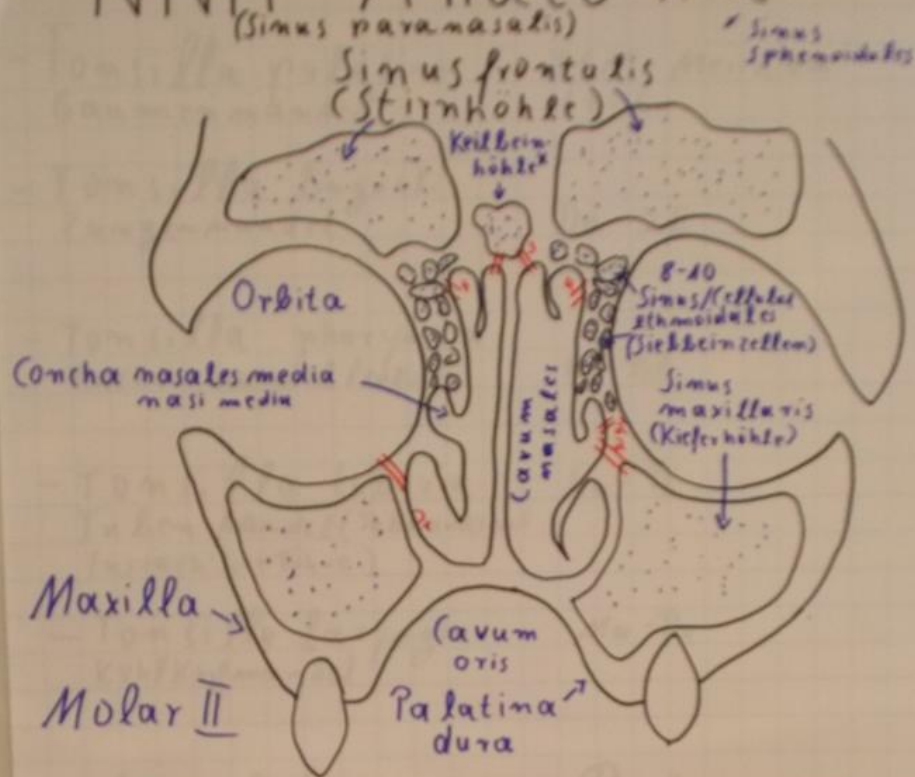 NNH
(Sinus paranasalis)
* Sinus
sphenoidales
Sinus frontalis
(Stirnhöhle)
Keilbein-
höhle*
Orbita
8-10
Sinus/Cellulae
ethmoidales
(Siebbeinzellen)
Concha nasales media
nasi media
Sinus
maxillaris
(Kieferhöhle)
Cavum
nasales
Maxilla
Cavum
oris
Molar II
Palatina
dura